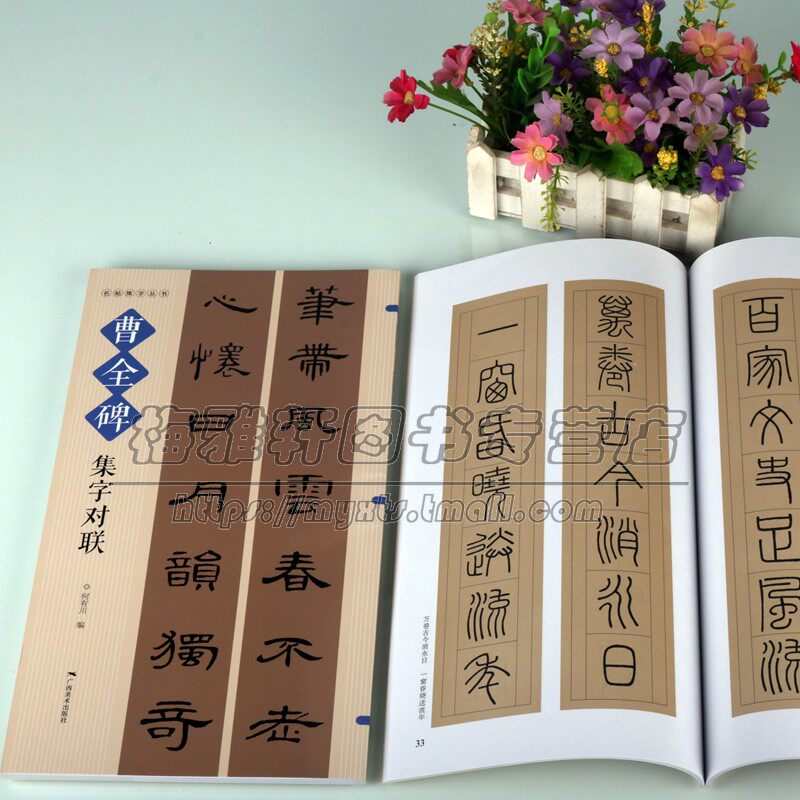 名帖集字丛书
曹全碑
集字对联
◎何有川 编
广西美术出版社
筆帶風雲春不老
心懷日月韻獨奇
萬卷古今消永日
一窗昏曉送流年
万卷古今消永日 一窗昏晓送流年
33
百家文史足風流
梅雅轩图书专营店
https://myxts.tmall.com/